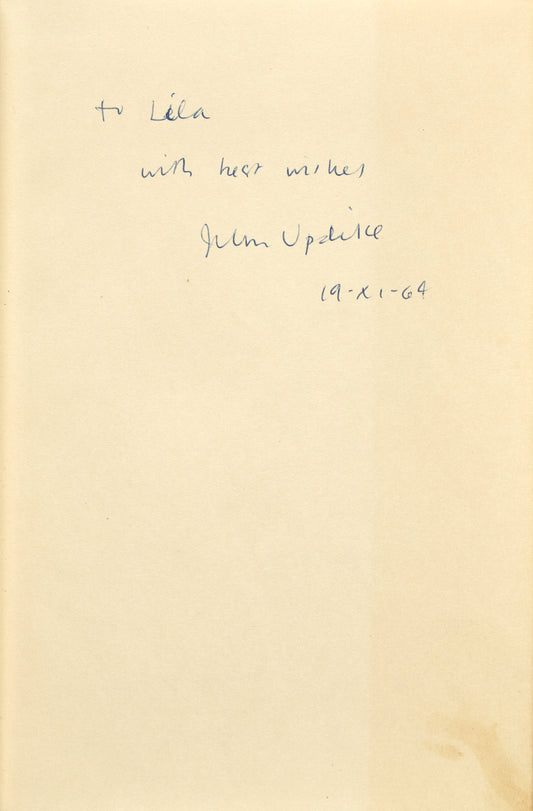 to Lila
with best wishes
John Updike
19-XI-64